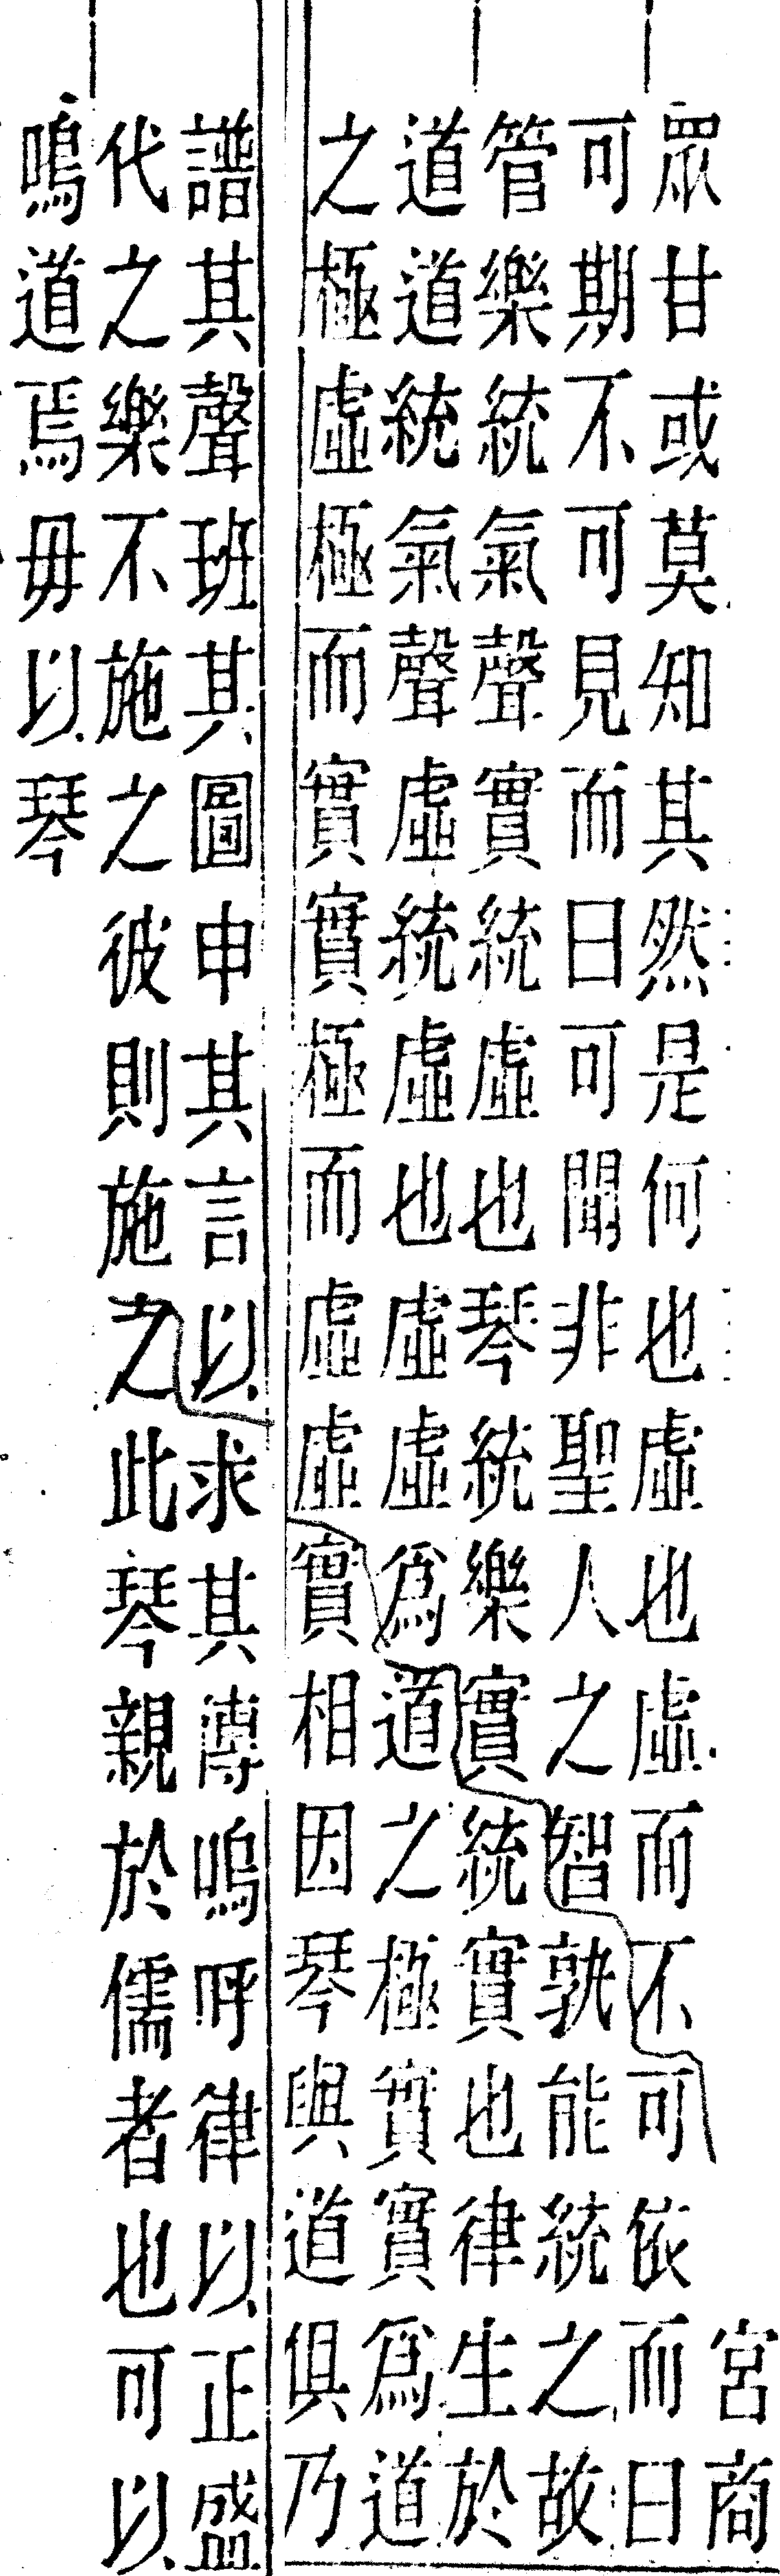 宮商
眾甘或莫知其然是何也虛也虛而不可依而曰
可期不可見而曰可聞非聖人之智孰能統之故
管樂統氣聲實統虛也琴統樂實統實也律生於
道道統氣聲虛統虛也虛虛為道之極實實為道
之極虛極而實實極而虛虛實相因琴與道俱乃
譜其聲班其圖申其言以求其傳嗚呼律以正盛
代之樂不施之彼則施之此琴親於儒者也可以
鳴道焉毋以琴